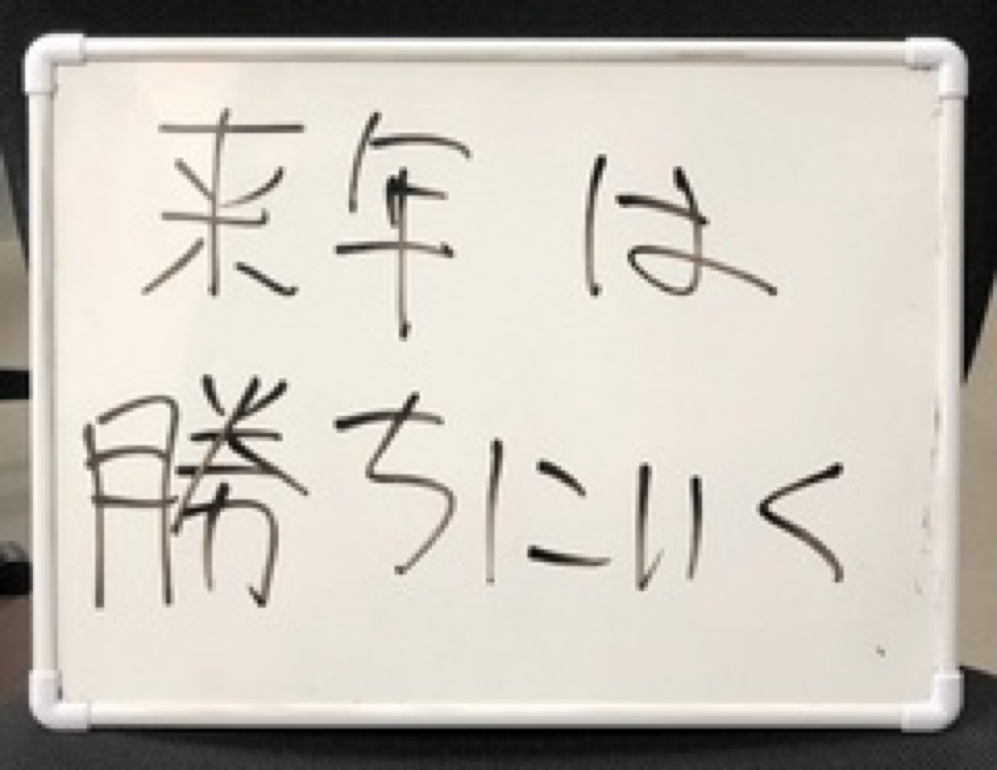 来年は
勝ちにいく